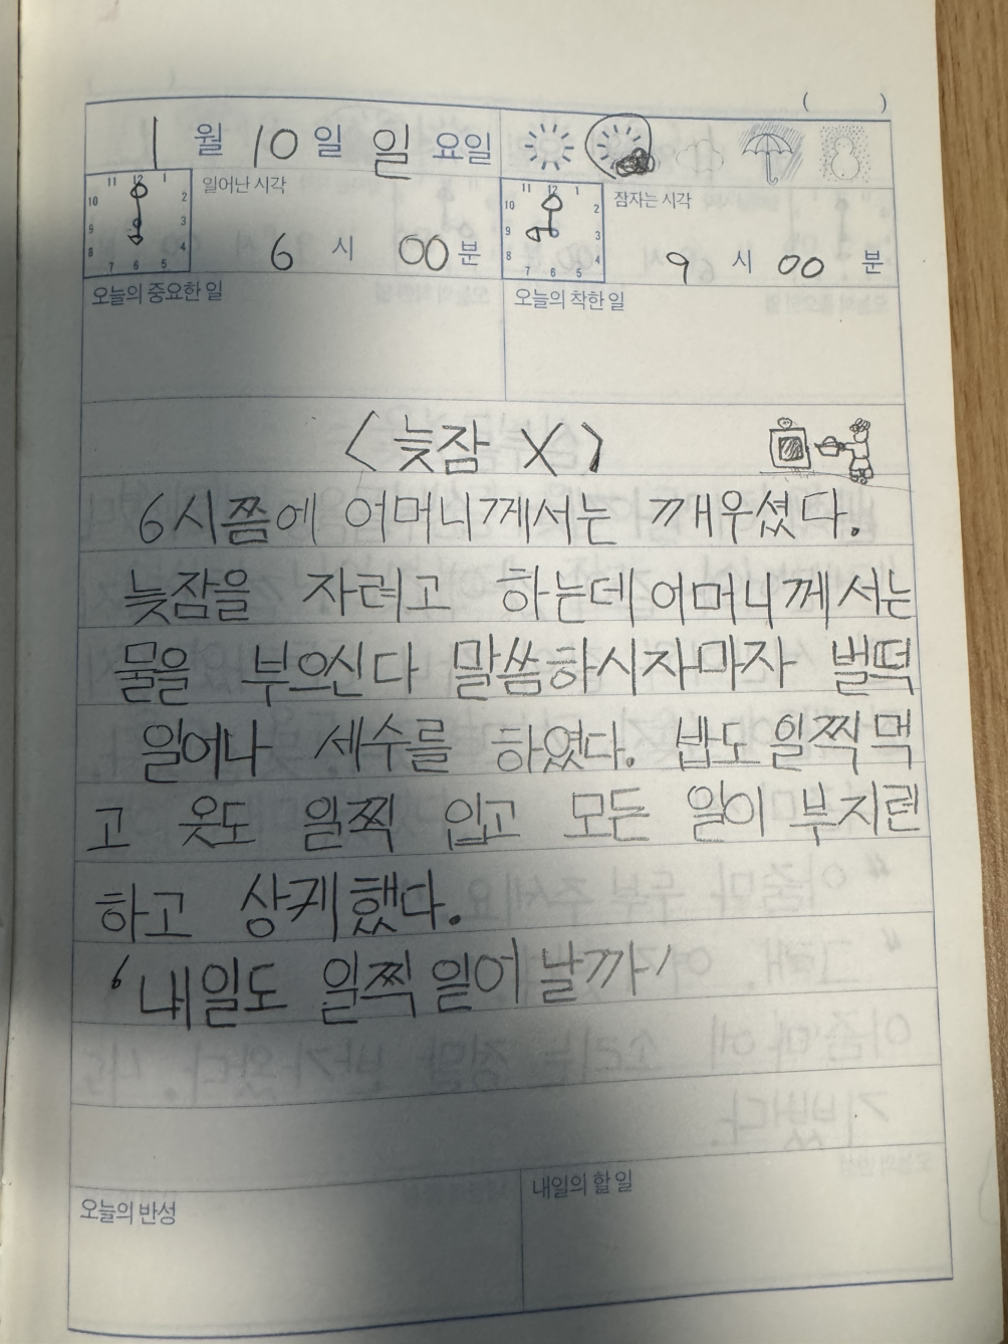 ( )
1 월 10 일 일 요일
일어난 시각
6 시 00 분
잠자는 시각
9 시 00 분
11 12 1
10 2
9 3
8 4
7 6 5
11 12 1
10 2
9 3
8 4
7 6 5
오늘의 중요한 일
오늘의 착한 일
<늦잠 X>
6시쯤에 어머니께서는 깨우셨다.
늦잠을 자려고 하는데 어머니께서는
물을 부으신다 말씀하시자마자 벌떡
일어나 세수를 하였다. 밥도 일찍 먹
고 옷도 일찍 입고 모든 일이 부지런
하고 상퀘했다.
'내일도 일찍 일어 날까'
오늘의 반성
내일의 할 일